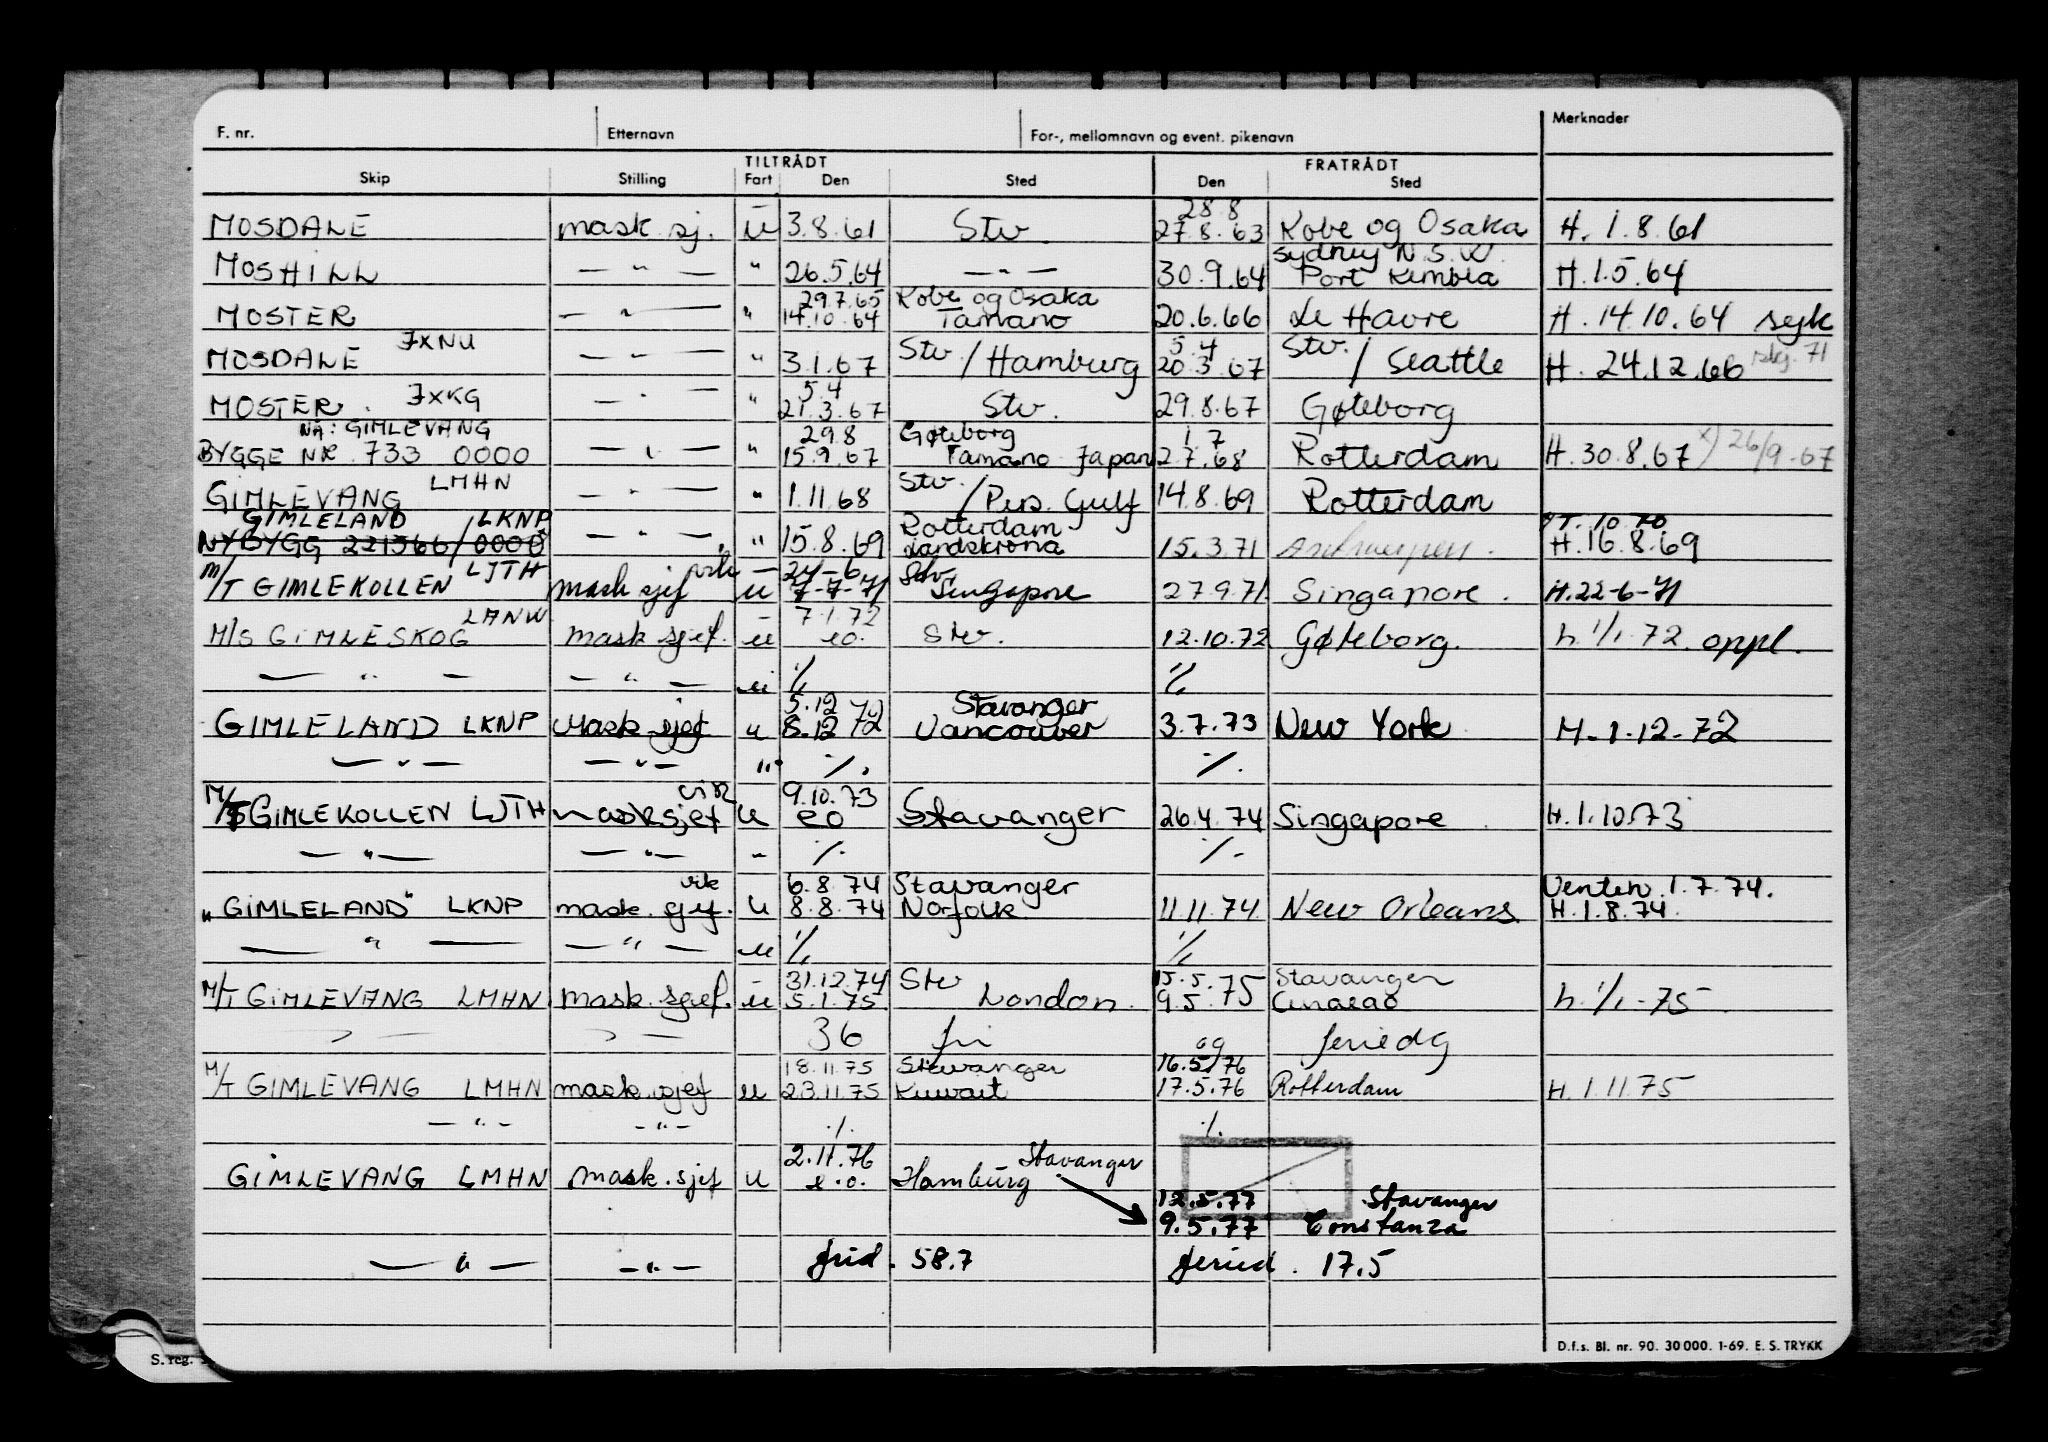 F. nr. Etternavn For-, mellomnavn og event. pikenavn Merknader
TILTRÅDT FRATRÅDT
Skip Stilling Fart Den Sted Den Sted
28.8
MOSDALE mask. sj. u 3.8.61 Stv 27.8.63 Kobe og Osaka H. 1.8.61
Sydney N.S.W.
MOSHILL — " — " 26.5.64 — " — 30.9.64 Port Kembla H. 1.5.64
29.7.65 Kobe og Osaka
MOSTER — " — " 14.10.64 Tamano 20.6.66 Le Havre H. 14.10.64 syk
JXNU Stv. 5.4 Stv.
MOSDALE — " — " 3.1.67 / Hamburg 20.3.67 / Seattle H. 24.12.66 71
5.4
MOSTER. JXKG — " — " 21.3.67 Stv. 29.8.67 Gøteborg
NÅ: GIMLEVANG 29.8 Gøteborg 1.7
BYGGE NR. 733 0000 — " — " 15.9.67 Tamano Japan 2.7.68 Rotterdam H. 30.8.67 x) 26/9-67
LMHN Stv.
GIMLEVANG — " — " 1.11.68 / Pers. Gulf 14.8.69 Rotterdam
GIMLELAND / LKNP Rotterdam 10.70
NYBYGG 221566/0000 — " — " 15.8.69 Landskrona 15.3.71 Antwerpen. H. 16.8.69
LJTH vik 24-6 Stv.
M/T GIMLEKOLLEN mask sjef u 7-7-71 Singapore 27.9.71 Singapore. H. 22-6-71
LANW 7.1.72
M/S GIMLESKOG mask. sjef. u eo. Stv. 12.10.72 Gøteborg. h. 1/1.72 oppl.
— " — — " — u % %
5.12 72 Stavanger
GIMLELAND LKNP Mask. sjef u 8.12 72 Vancouver 3.7.73 New York H. 1.12.72
— " — — " — " % %
vik 9.10.73
M/T GIMLEKOLLEN LJTH masksjef u eo Stavanger 26.4.74 Singapore H. 1.10.73
— " — — " — " % %
vik 6.8.74 Stavanger Venten. 1.7.74.
"GIMLELAND" LKNP mask. sjef. u 8.8.74 Norfolk 11.11.74 New Orleans H. 1.8.74.
— " — — " — u % %
31.12.74 Stv 15.5.75 Stavanger
M/T GIMLEVANG LMHN mask. sjef. u 5.1.75 London. 9.5.75 Curacao h. 1/1-75
36 fri og feriedg
18.11.75 Stavanger 16.5.76
M/T GIMLEVANG LMHN mask. sjef u 23.11.75 Kuwait 17.5.76 Rotterdam H. 1.11.75
— " — — " — % %
2.11.76 Stavanger
GIMLEVANG LMHN mask. sjef u e.o. Hamburg
12.5.77 Stavanger
9.5.77 Constanza
— " — — " — frid. 58.7 feried. 17.5
D.f.s. Bl. nr. 90. 30 000. 1-69. E. S. TRYKK
S. reg.